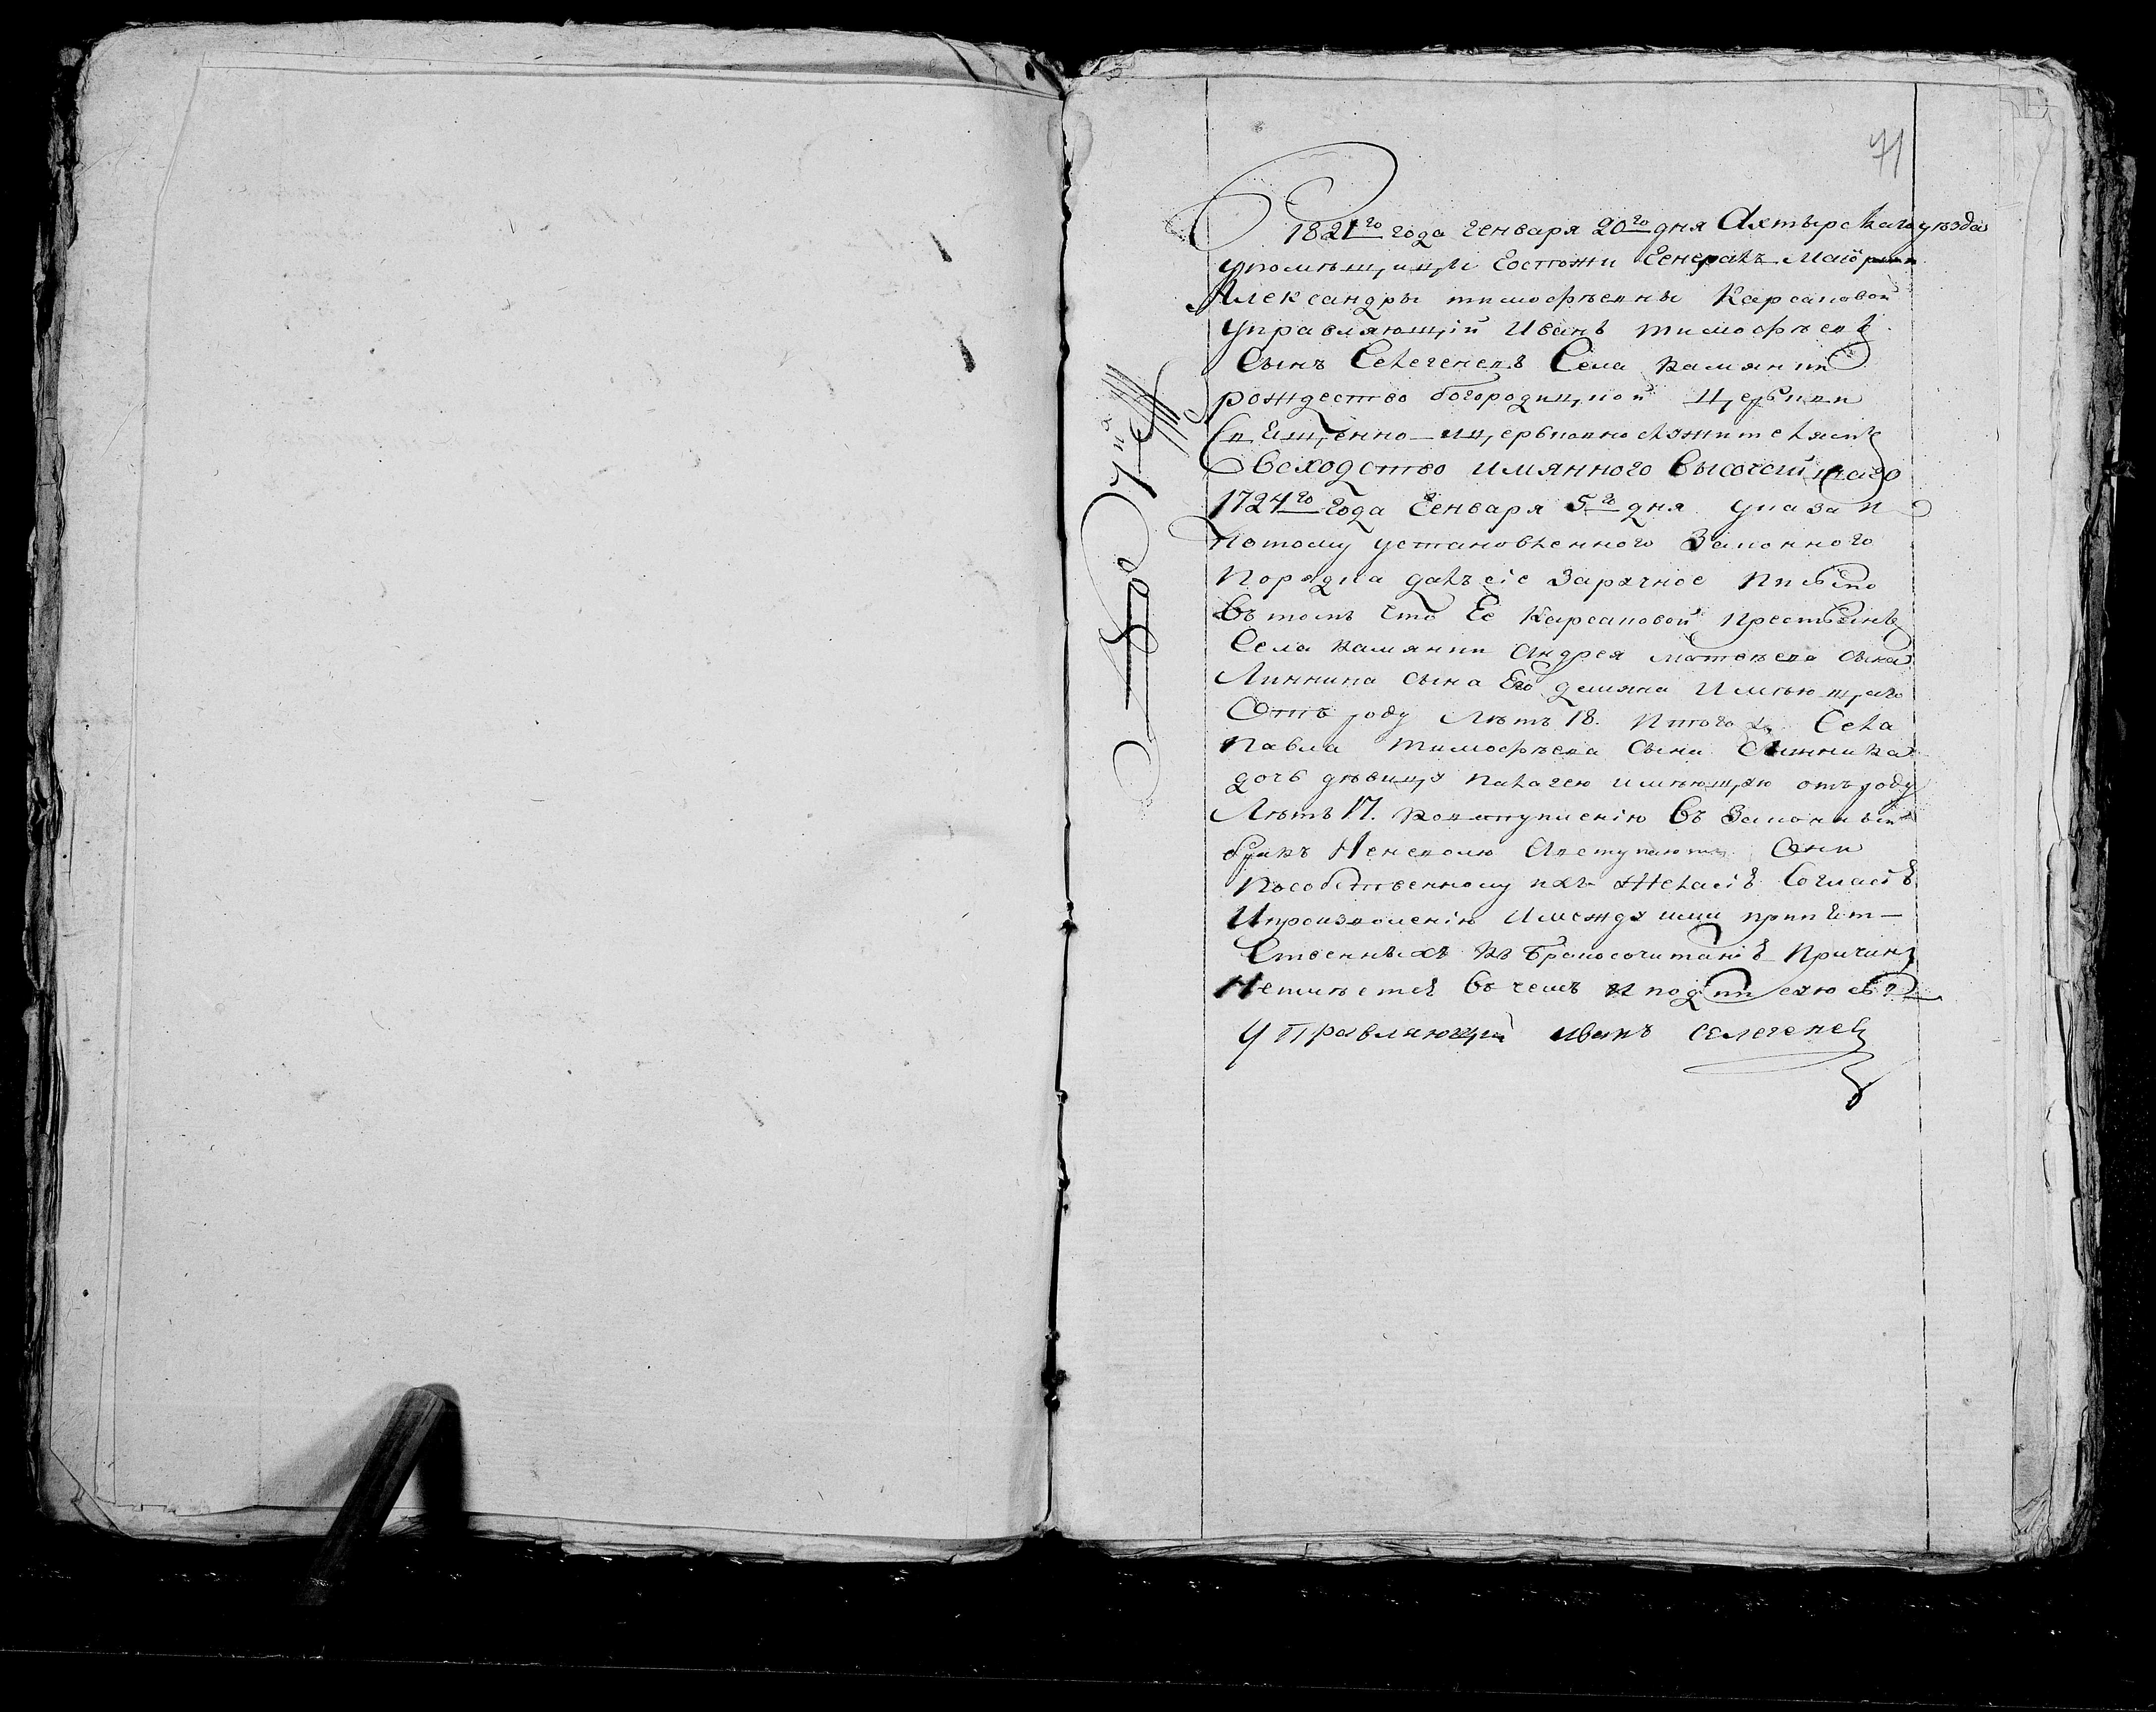 71
1821го года генваря 20го дня Ахтырскаго уѣзда
упомѣщицы Госпожи Генералъ Маіорши
Александры тимофѣевны Карсаковой
управляющій Иванъ тимофѣевъ
Сынъ Селегеневъ Села камянки
рождество богородичной Церькви
Священно-и церьковнослужителямъ
Всходство имянного высочайшаго
1724го года Генваря 5го дня указа и
потому установленного Законного
порядка далъ сіе Заручное письмо
Въ томъ что Ее Карсаковой крестьянъ
Села камянки Андрея матвѣева сына
Линника сына Его демяна Имѣющаго
Отъ роду лѣтъ 18. и того ж Села
Павла тимофѣева сына Линника
дочь дѣвицу палагею имѣющую отъ роду
Лѣтъ 17. ковступленію Въ Законный
бракъ Неневолю Авступаютъ Они
Пособственному ихъ желаніѣ Согласіѣ
Ипроизволенію Имежду ими препят-
Ственныхъ къ бракосочитаніѣ причинъ
Неимѣется Въ чемъ и подписуюсь
управляющій иванъ селегенев